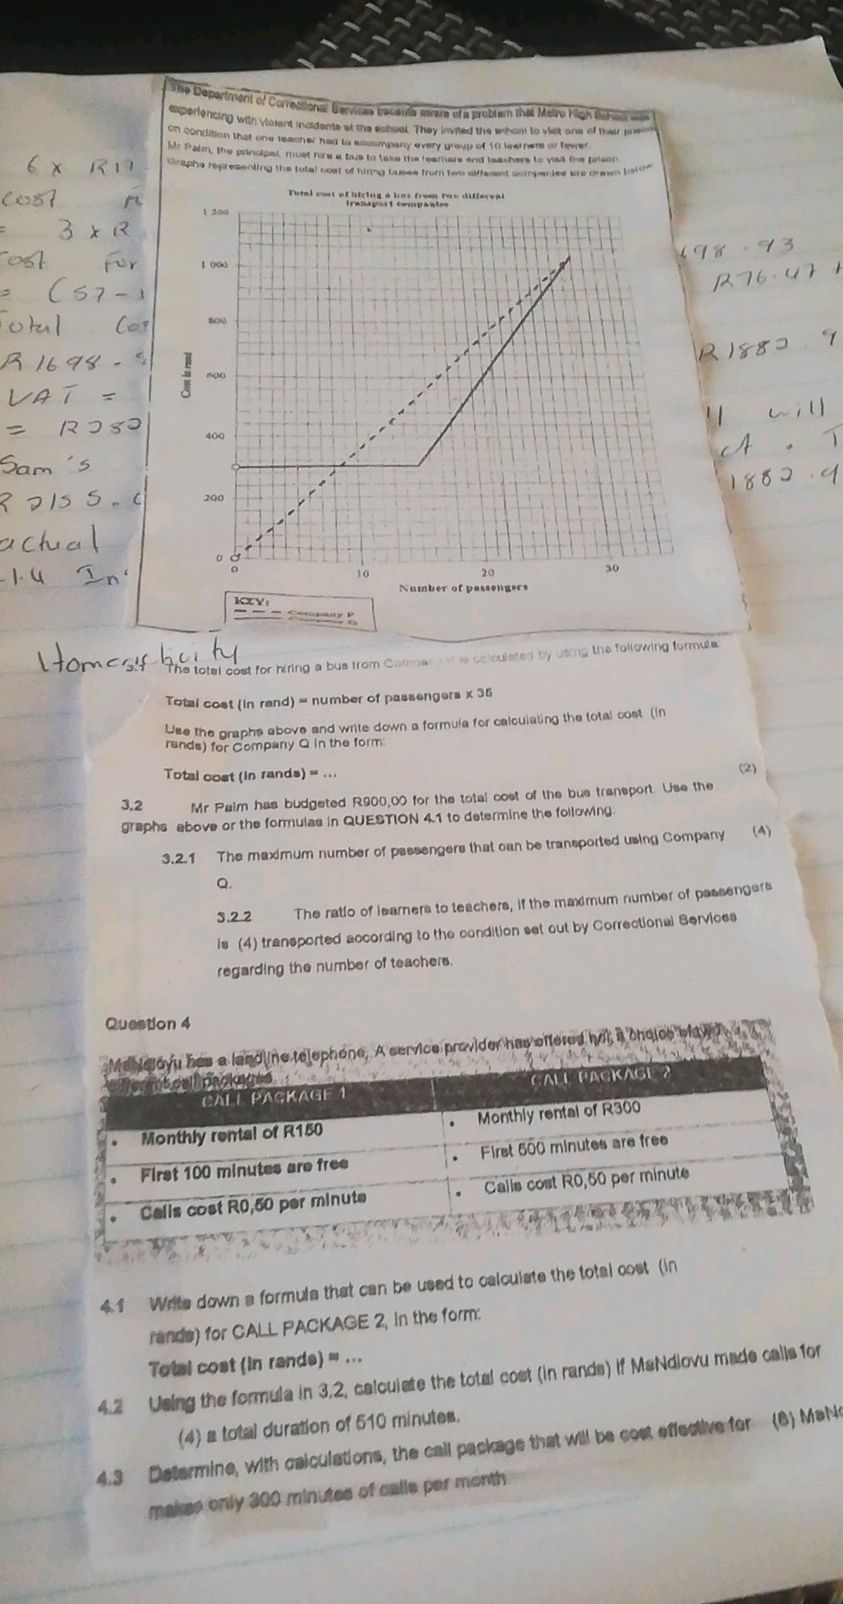 The Department of Correctional Services became aware of a problem that Metro High School was
experiencing with violent incidents at the school. They invited the school to visit one of their prisons
on condition that one teacher had to accompany every group of 10 learners or fewer.
Mr Palm, the principal, must hire a bus to take the learners and teachers to visit the prison.
Graphs representing the total cost of hiring buses from two different companies are drawn below
Total cost of hiring a bus from two different
transport companies
1 200
1 000
800
600
400
200
0
Cost in rand
0 10 20 30
Number of passengers
KEY:
Company P
Company Q
6 x R
cost
= 3 x R
cost for
= (57-1
Total Cos
R1698
VAT =
= R282
Sam's
R 2155.
actual
1.4 In
698.93
R76.47
R1882 9
will
1882.9
The total cost for hiring a bus from Company P is calculated by using the following formula
Total cost (in rand) = number of passengers x 35
Use the graphs above and write down a formula for calculating the total cost (in
rands) for Company Q in the form:
Total cost (in rands) = ...
(2)
3.2 Mr Palm has budgeted R900,00 for the total cost of the bus transport. Use the
graphs above or the formulas in QUESTION 4.1 to determine the following:
3.2.1 The maximum number of passengers that can be transported using Company (4)
Q.
3.2.2 The ratio of learners to teachers, if the maximum number of passengers
is (4) transported according to the condition set out by Correctional Services
regarding the number of teachers.
Question 4
MaNdlovu has a landline telephone, A service provider has offered her a choice of two
different call packages
CALL PACKAGE 1 CALL PACKAGE 2
• Monthly rental of R150 • Monthly rental of R300
• First 100 minutes are free • First 500 minutes are free
• Calls cost R0,50 per minute • Calls cost R0,50 per minute
4.1 Write down a formula that can be used to calculate the total cost (in
rands) for CALL PACKAGE 2, in the form:
Total cost (in rands) = ...
4.2 Using the formula in 3.2, calculate the total cost (in rands) if MaNdlovu made calls for
(4) a total duration of 510 minutes.
4.3 Determine, with calculations, the call package that will be cost effective for (6)
makes only 300 minutes of calls per month